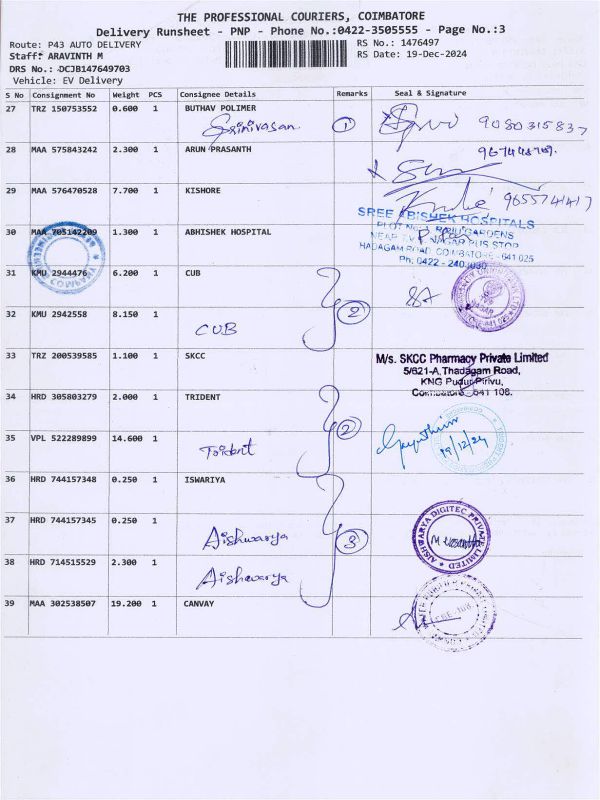 THE PROFESSIONAL COURIERS, COIMBATORE
Delivery Runsheet - PNP - Phone No.:0422-3505555 - Page No.:3
Route: P43 AUTO DELIVERY
RS No.: 1476497
Staff: ARAVINTH M
RS Date: 19-Dec-2024
DRS No.: DCJB147649703
Vehicle: EV Delivery
S No Consignment No Weight PCS Consignee Details Remarks Seal & Signature
27 TRZ 150753552 0.600 1 BUTHAV POLIMER
Srinivasan 1 9080315837
28 MAA 575843242 2.300 1 ARUN PRASANTH
29 MAA 576470528 7.700 1 KISHORE
9655741417
30 MAA 705142209 1.300 1 ABHISHEK HOSPITAL
SREE ABISHEK HOSPITALS
HADAGAM ROAD, COIMBATORE - 641 025
31 KMU 2944476 6.200 1 CUB
2
32 KMU 2942558 8.150 1
CUB
33 TRZ 200539585 1.100 1 SKCC
M/s. SKCC Pharmacy Private Limited
5/621-A, Thadagam Road,
KNG Pudur Pirivu,
Coimbatore - 641 108.
34 HRD 305803279 2.000 1 TRIDENT
2
35 VPL 522289899 14.600 1
Trident
19/12/24
36 HRD 744157348 0.250 1 ISWARIYA
37 HRD 744157345 0.250 1
Aishwarya 3
AISHWARYA DIGITEC PRIVATE LIMITED
38 HRD 714515529 2.300 1
Aishwarya
39 MAA 302538507 19.200 1 CANVAY